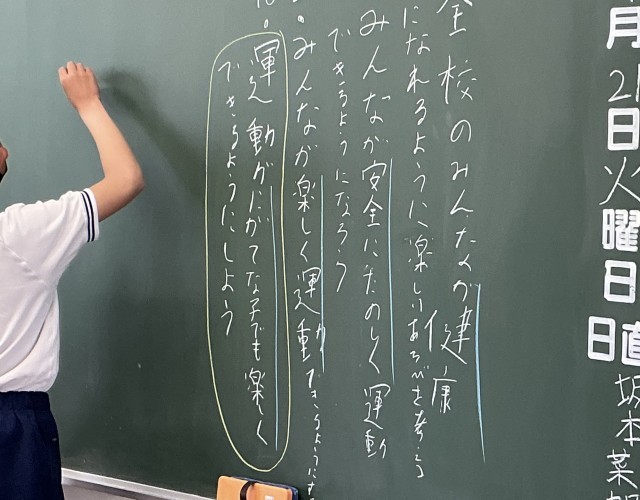 月
21
日
火
曜
日
日直
坂本
菜
全校のみんなが健康
になれるように楽しいあそびを考えう
みんなが安全にたのしく運動
できるようになろう
みんなが楽しく運動できるようにす
運動がにがてな子でも楽しく
できるようにしよう